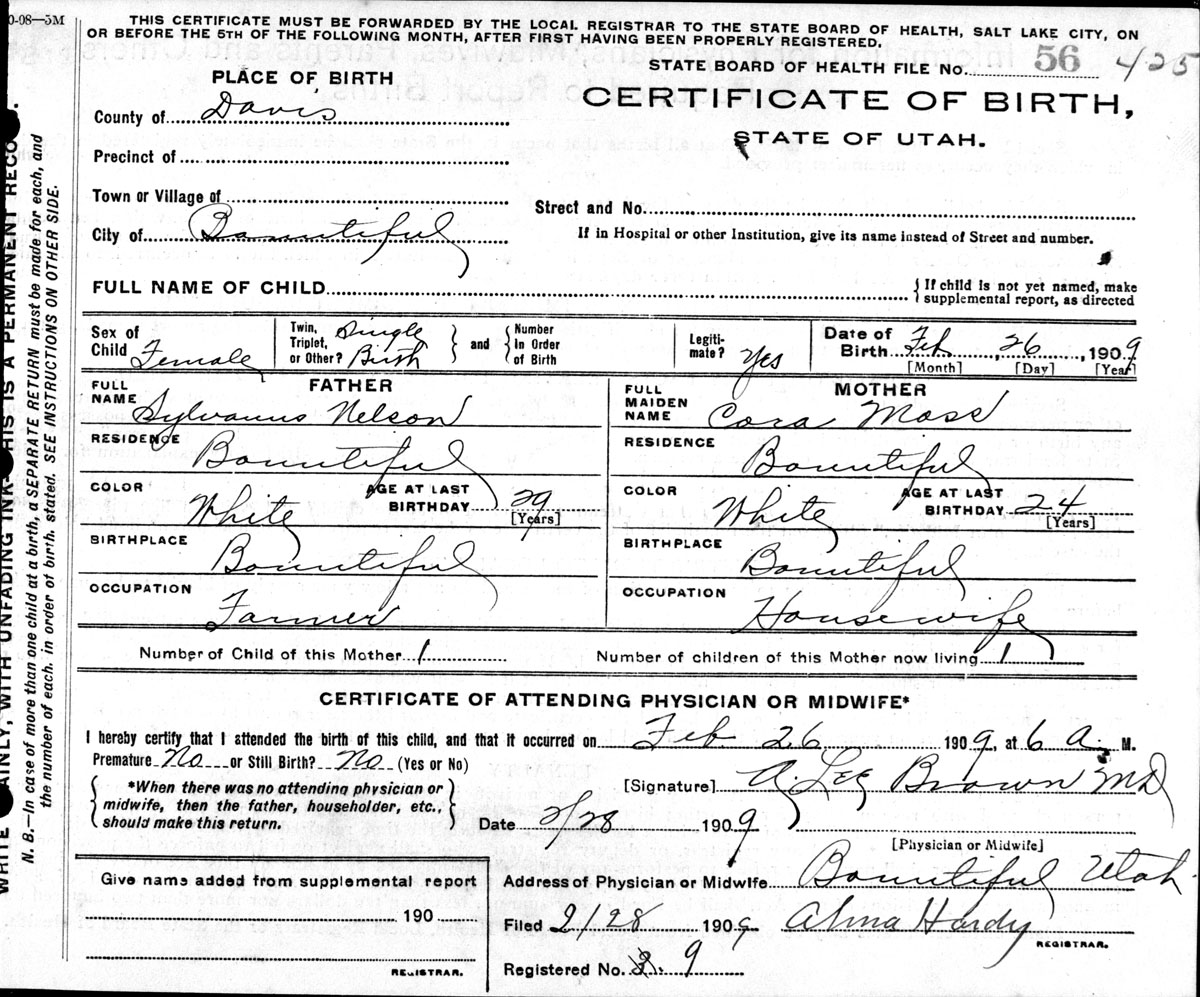 0-08—5M
THIS CERTIFICATE MUST BE FORWARDED BY THE LOCAL REGISTRAR TO THE STATE BOARD OF HEALTH, SALT LAKE CITY, ON
OR BEFORE THE 5TH OF THE FOLLOWING MONTH, AFTER FIRST HAVING BEEN PROPERLY REGISTERED.
STATE BOARD OF HEALTH FILE No. 56 425
PLACE OF BIRTH
CERTIFICATE OF BIRTH,
STATE OF UTAH.
County of Davis
Precinct of
Town or Village of
Street and No.
City of Bountiful
If in Hospital or other Institution, give its name instead of Street and number.
FULL NAME OF CHILD
{If child is not yet named, make
supplemental report, as directed
Sex of Child Female
Twin, Triplet, or Other? Single Birth } and { Number In Order of Birth
Legiti-mate? Yes
Date of Birth Feb, 26, 1909
[Month] [Day] [Year]
FATHER
FULL NAME Sylvanus Nelson
RESIDENCE Bountiful
COLOR White AGE AT LAST BIRTHDAY 29 [Years]
BIRTHPLACE Bountiful
OCCUPATION Farmer
MOTHER
FULL MAIDEN NAME Cora Moss
RESIDENCE Bountiful
COLOR White AGE AT LAST BIRTHDAY 24 [Years]
BIRTHPLACE Bountiful
OCCUPATION Housewife
Number of Child of this Mother 1 Number of children of this Mother now living 1
CERTIFICATE OF ATTENDING PHYSICIAN OR MIDWIFE*
I hereby certify that I attended the birth of this child, and that it occurred on Feb. 26 1909, at 6 a. M.
Premature No or Still Birth? No (Yes or No)
*When there was no attending physician or
midwife, then the father, householder, etc.,
should make this return.
[Signature] A. Lee Brown MD
Date 2/28 1909
[Physician or Midwife]
Give name added from supplemental report
190
REGISTRAR.
Address of Physician or Midwife Bountiful Utah.
Filed 2/28 1909 Alma Hardy
REGISTRAR.
Registered No. 9
AINLY, WITH UNFADING INK THIS IS A PERMANENT RECO
N. B.—In case of more than one child at a birth, a SEPARATE RETURN must be made for each, and
the number of each, in order of birth, stated. SEE INSTRUCTIONS ON OTHER SIDE.